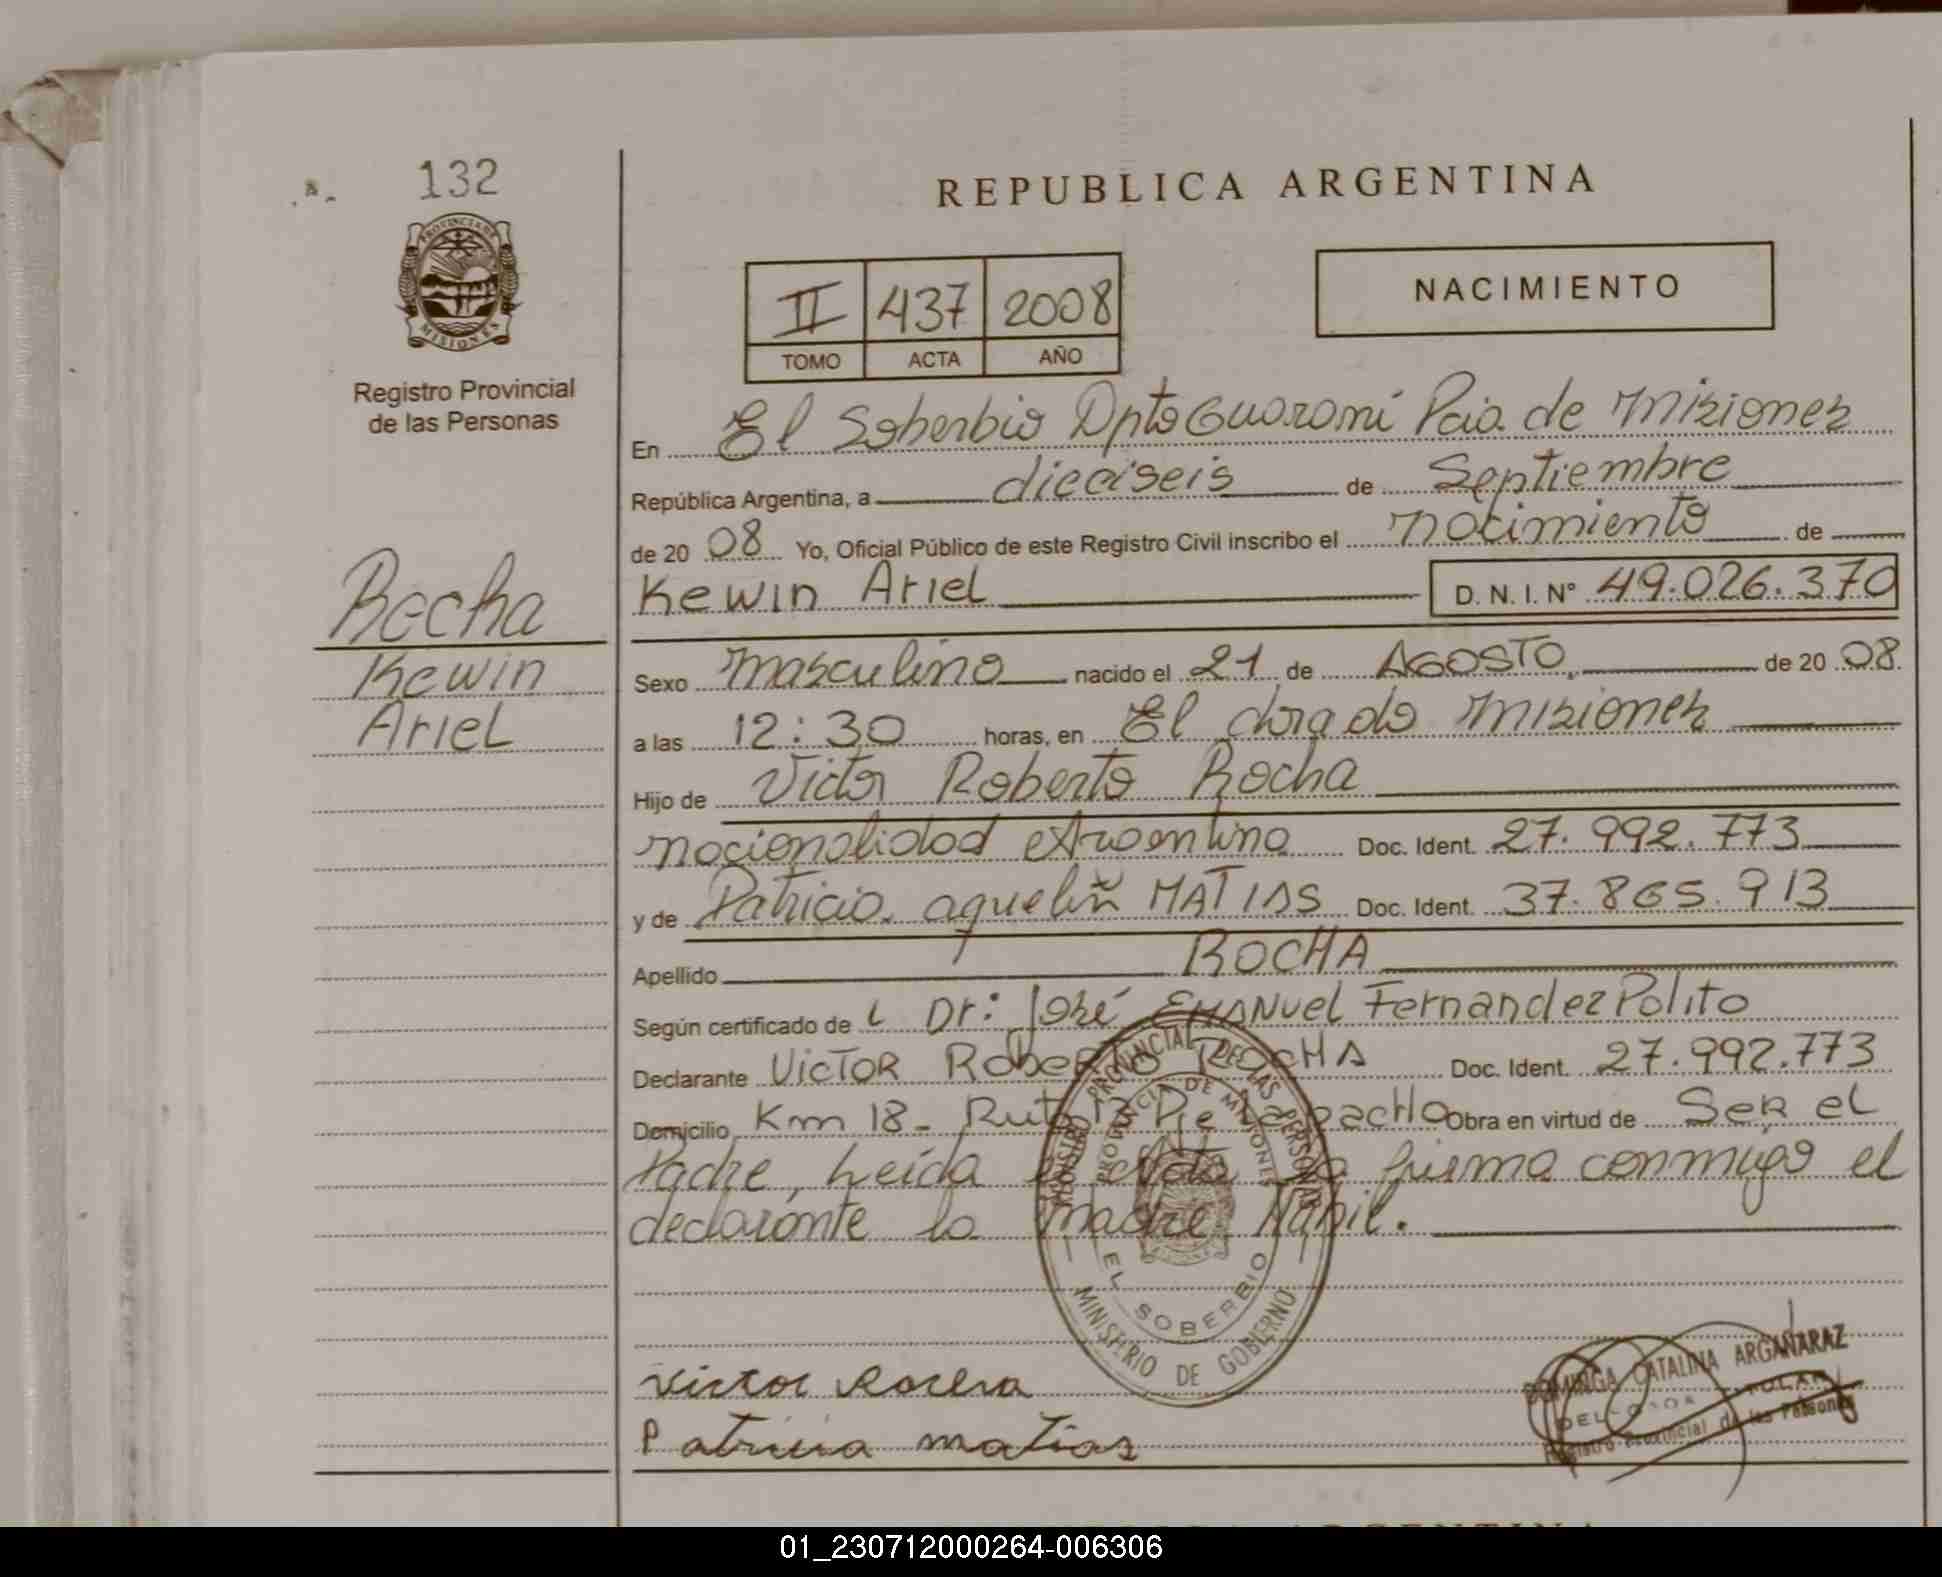 132
PROVINCIA DE
MISIONES
Registro Provincial
de las Personas
Rocha
Kewin
Ariel
REPUBLICA ARGENTINA
II 437 2008
TOMO ACTA AÑO
NACIMIENTO
En El Soberbio Dpto Guaraní Pcia. de Misiones
República Argentina, a dieciseis de Septiembre
de 20 08 Yo, Oficial Público de este Registro Civil inscribo el nacimiento de
Kewin Ariel D. N. I. N° 49.026.370
Sexo masculino nacido el 21 de AGOSTO de 20 08.
a las 12:30 horas, en El dorado Misiones
Hijo de Victor Roberto Rocha
nacionalidad Argentina Doc. Ident. 27.992.773
y de Patricia MATIAS Doc. Ident. 37.865.913
Apellido ROCHA
Según certificado de L Dr: José EMANuel Fernandez Polito
Declarante VICTOR Roberto ROCHA Doc. Ident. 27.992.773
Domicilio Km 18 - Ruta Pje Lapacho Obra en virtud de Ser el
Padre, Leída el Acta la firma conmigo el
declarante la madre Habil.
REGISTRO PROVINCIAL DE LAS PERSONAS
PROVINCIA DE MISIONES
EL SOBERBIO
MINISTERIO DE GOBIERNO
Victor Rocha
Patricia matias
DOMINGA CATALINA ARGAÑARAZ
Registro Provincial de las Personas
01_230712000264-006306